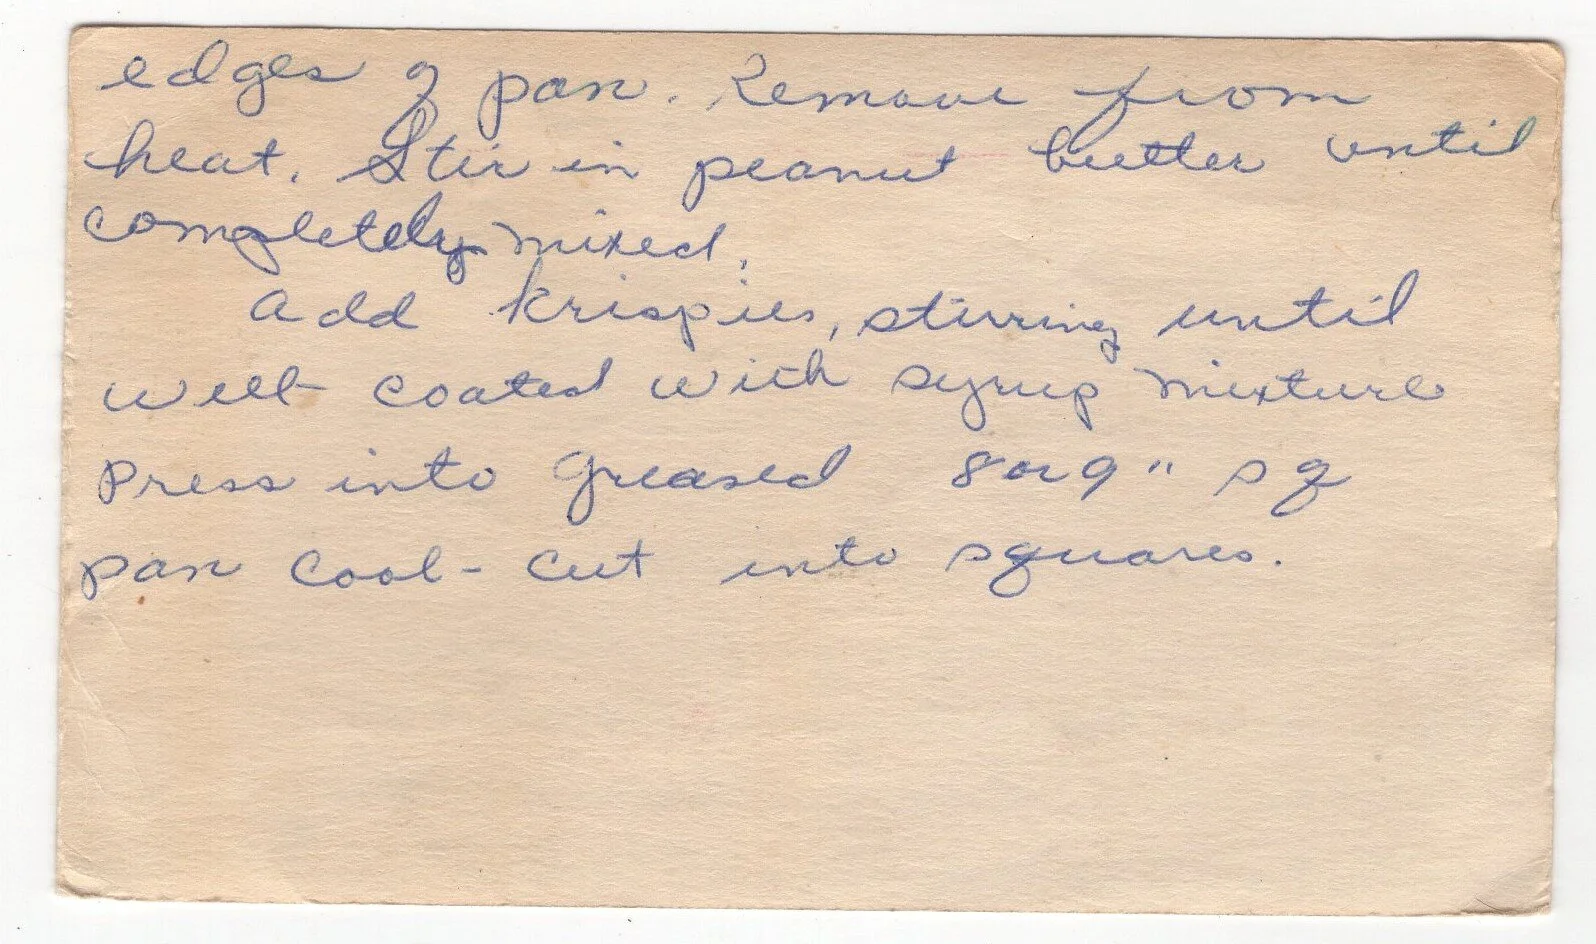 edges of pan. Remove from
heat. Stir in peanut butter until
completely mixed.
Add Krispies, stirring until
well coated with syrup mixture
Press into greased 8 or 9" sq
pan Cool - Cut into squares.